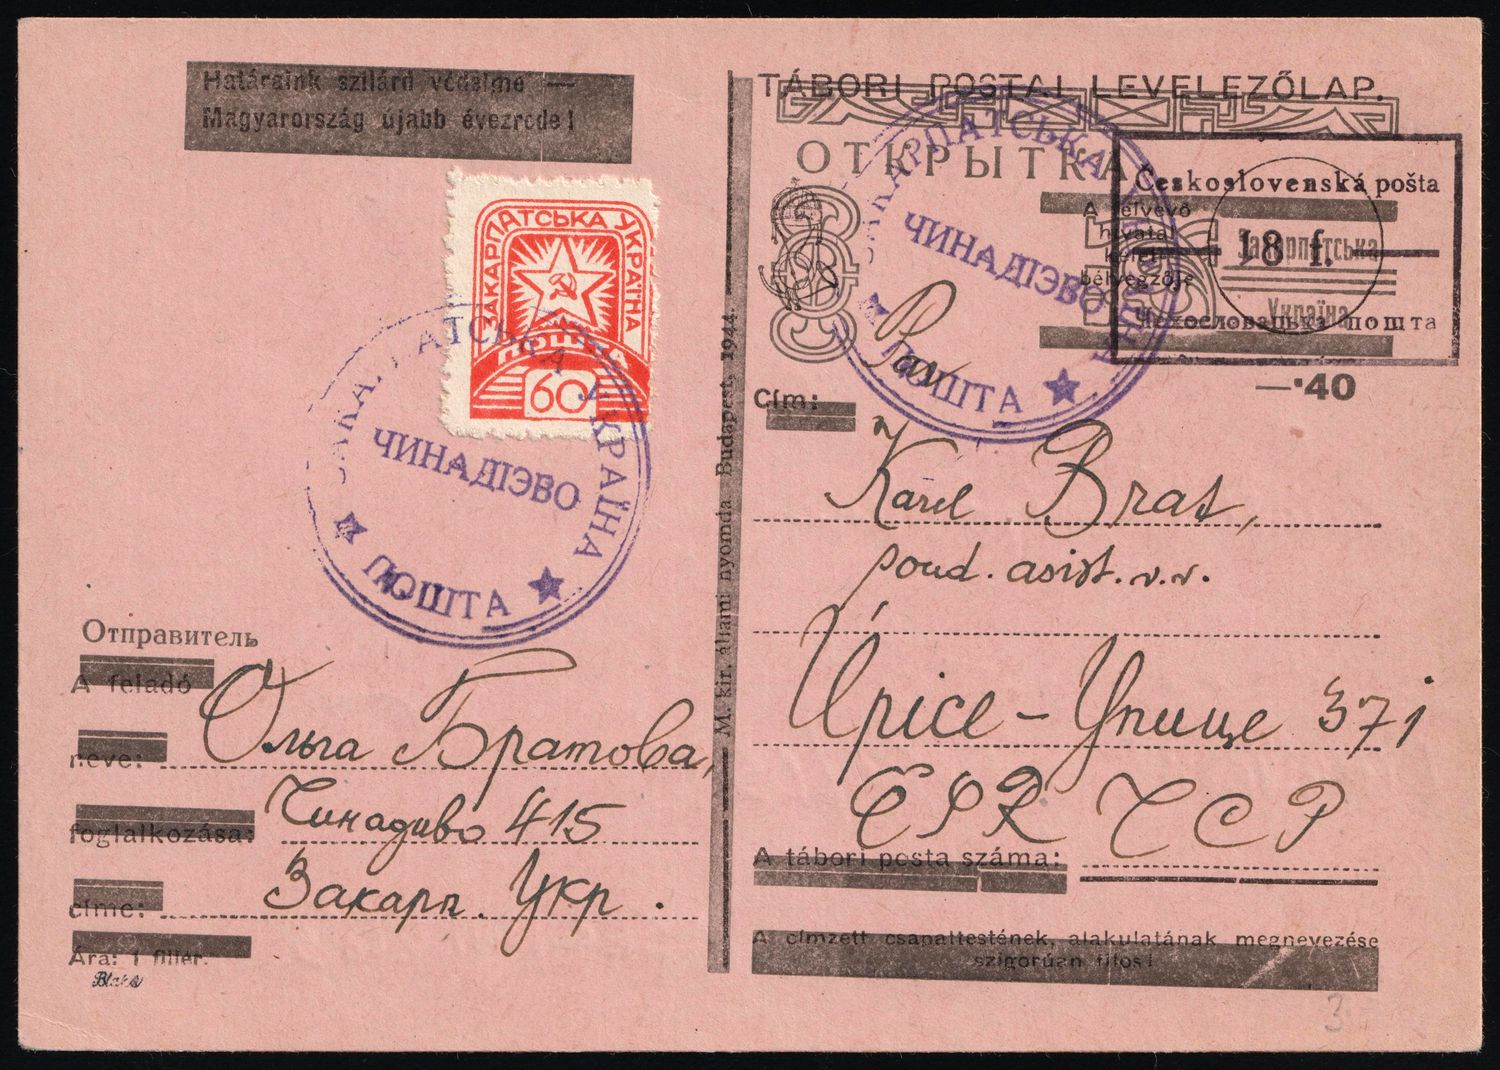 Határaink szilárd védelme —
Magyarország újabb évezrede!
TÁBORI POSTAI LEVELEZŐLAP.
ОТКРЫТКА
Československá pošta
A felvevő
hivatal
keleti
bélyegzője
18 f.
Закарпатська
Україна
Чехословацька пошта
—·40
ЗАКАРПАТСЬКА УКРАЇНА
ПОШТА
60
ЗАКАРПАТСЬКА УКРАЇНА
ЧИНАДІЭВО
ПОШТА
ЗАКАРПАТСЬКА УКРАЇНА
ЧИНАДІЭВО
ПОШТА
Pan
Cím:
Karel Brat,
poud. asist. v.v.
Úpice - Упице 371
ČSR ЧСР
A tábori posta száma:
A címzett csapattestének, alakulatának megnevezése
szigorúan tilos!
M. kir. állami nyomda Budapest, 1944.
Отправитель
A feladó
neve: Ольга Братова,
foglalkozása: Чинадиво 415
címe: Закарп. Укр.
Ára: 1 fillér.
3.